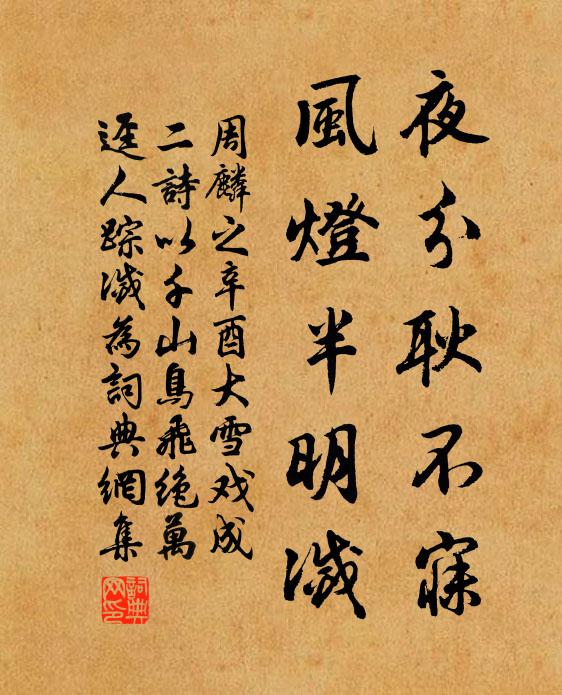 夜分耿不寐
風燈半明滅
周麟之辛酉大雪戏成
二詩以千山鳥飛絶萬
逕人踪滅為詞典網集
詞典网印